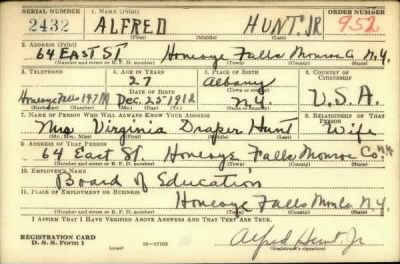 SERIAL NUMBER 1. NAME (Print) ORDER NUMBER
2432 ALFRED HUNT JR 952
(First) (Middle) (Last)
2. ADDRESS (Print)
64 EAST ST Honeoye Falls Monroe Co N.Y.
(Number and street or R. F. D. number) (Town) (County) (State)
3. TELEPHONE 4. AGE IN YEARS 5. PLACE OF BIRTH 6. COUNTRY OF CITIZENSHIP
27 Albany
DATE OF BIRTH (Town or county)
Honeoye Falls 147M Dec. 25 1912 N.Y. U.S.A.
(Exchange) (Number) (Mo.) (Day) (Yr.) (State or country)
7. NAME OF PERSON WHO WILL ALWAYS KNOW YOUR ADDRESS 8. RELATIONSHIP OF THAT PERSON
Mrs. Virginia Draper Hunt Wife
(Mr., Mrs., Miss) (First) (Middle) (Last)
9. ADDRESS OF THAT PERSON
64 East St Honeoye Falls Monroe Co. N.Y.
(Number and street or R. F. D. number) (Town) (County) (State)
10. EMPLOYER'S NAME
Board of Education
11. PLACE OF EMPLOYMENT OR BUSINESS
Honeoye Falls Mon Co. N.Y.
(Number and street or R. F. D. number) (Town) (County) (State)
I AFFIRM THAT I HAVE VERIFIED ABOVE ANSWERS AND THAT THEY ARE TRUE.
REGISTRATION CARD
D. S. S. Form 1 (over) 16-17105
Alfred Hunt Jr
(Registrant's signature)